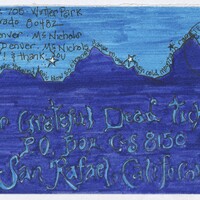 Winter Park
80482
Denver Ms Nichols
Denver Ms Nichols
! & thank you
Grateful Dead Tick
P.O. Box CS 8150
San Rafael, California